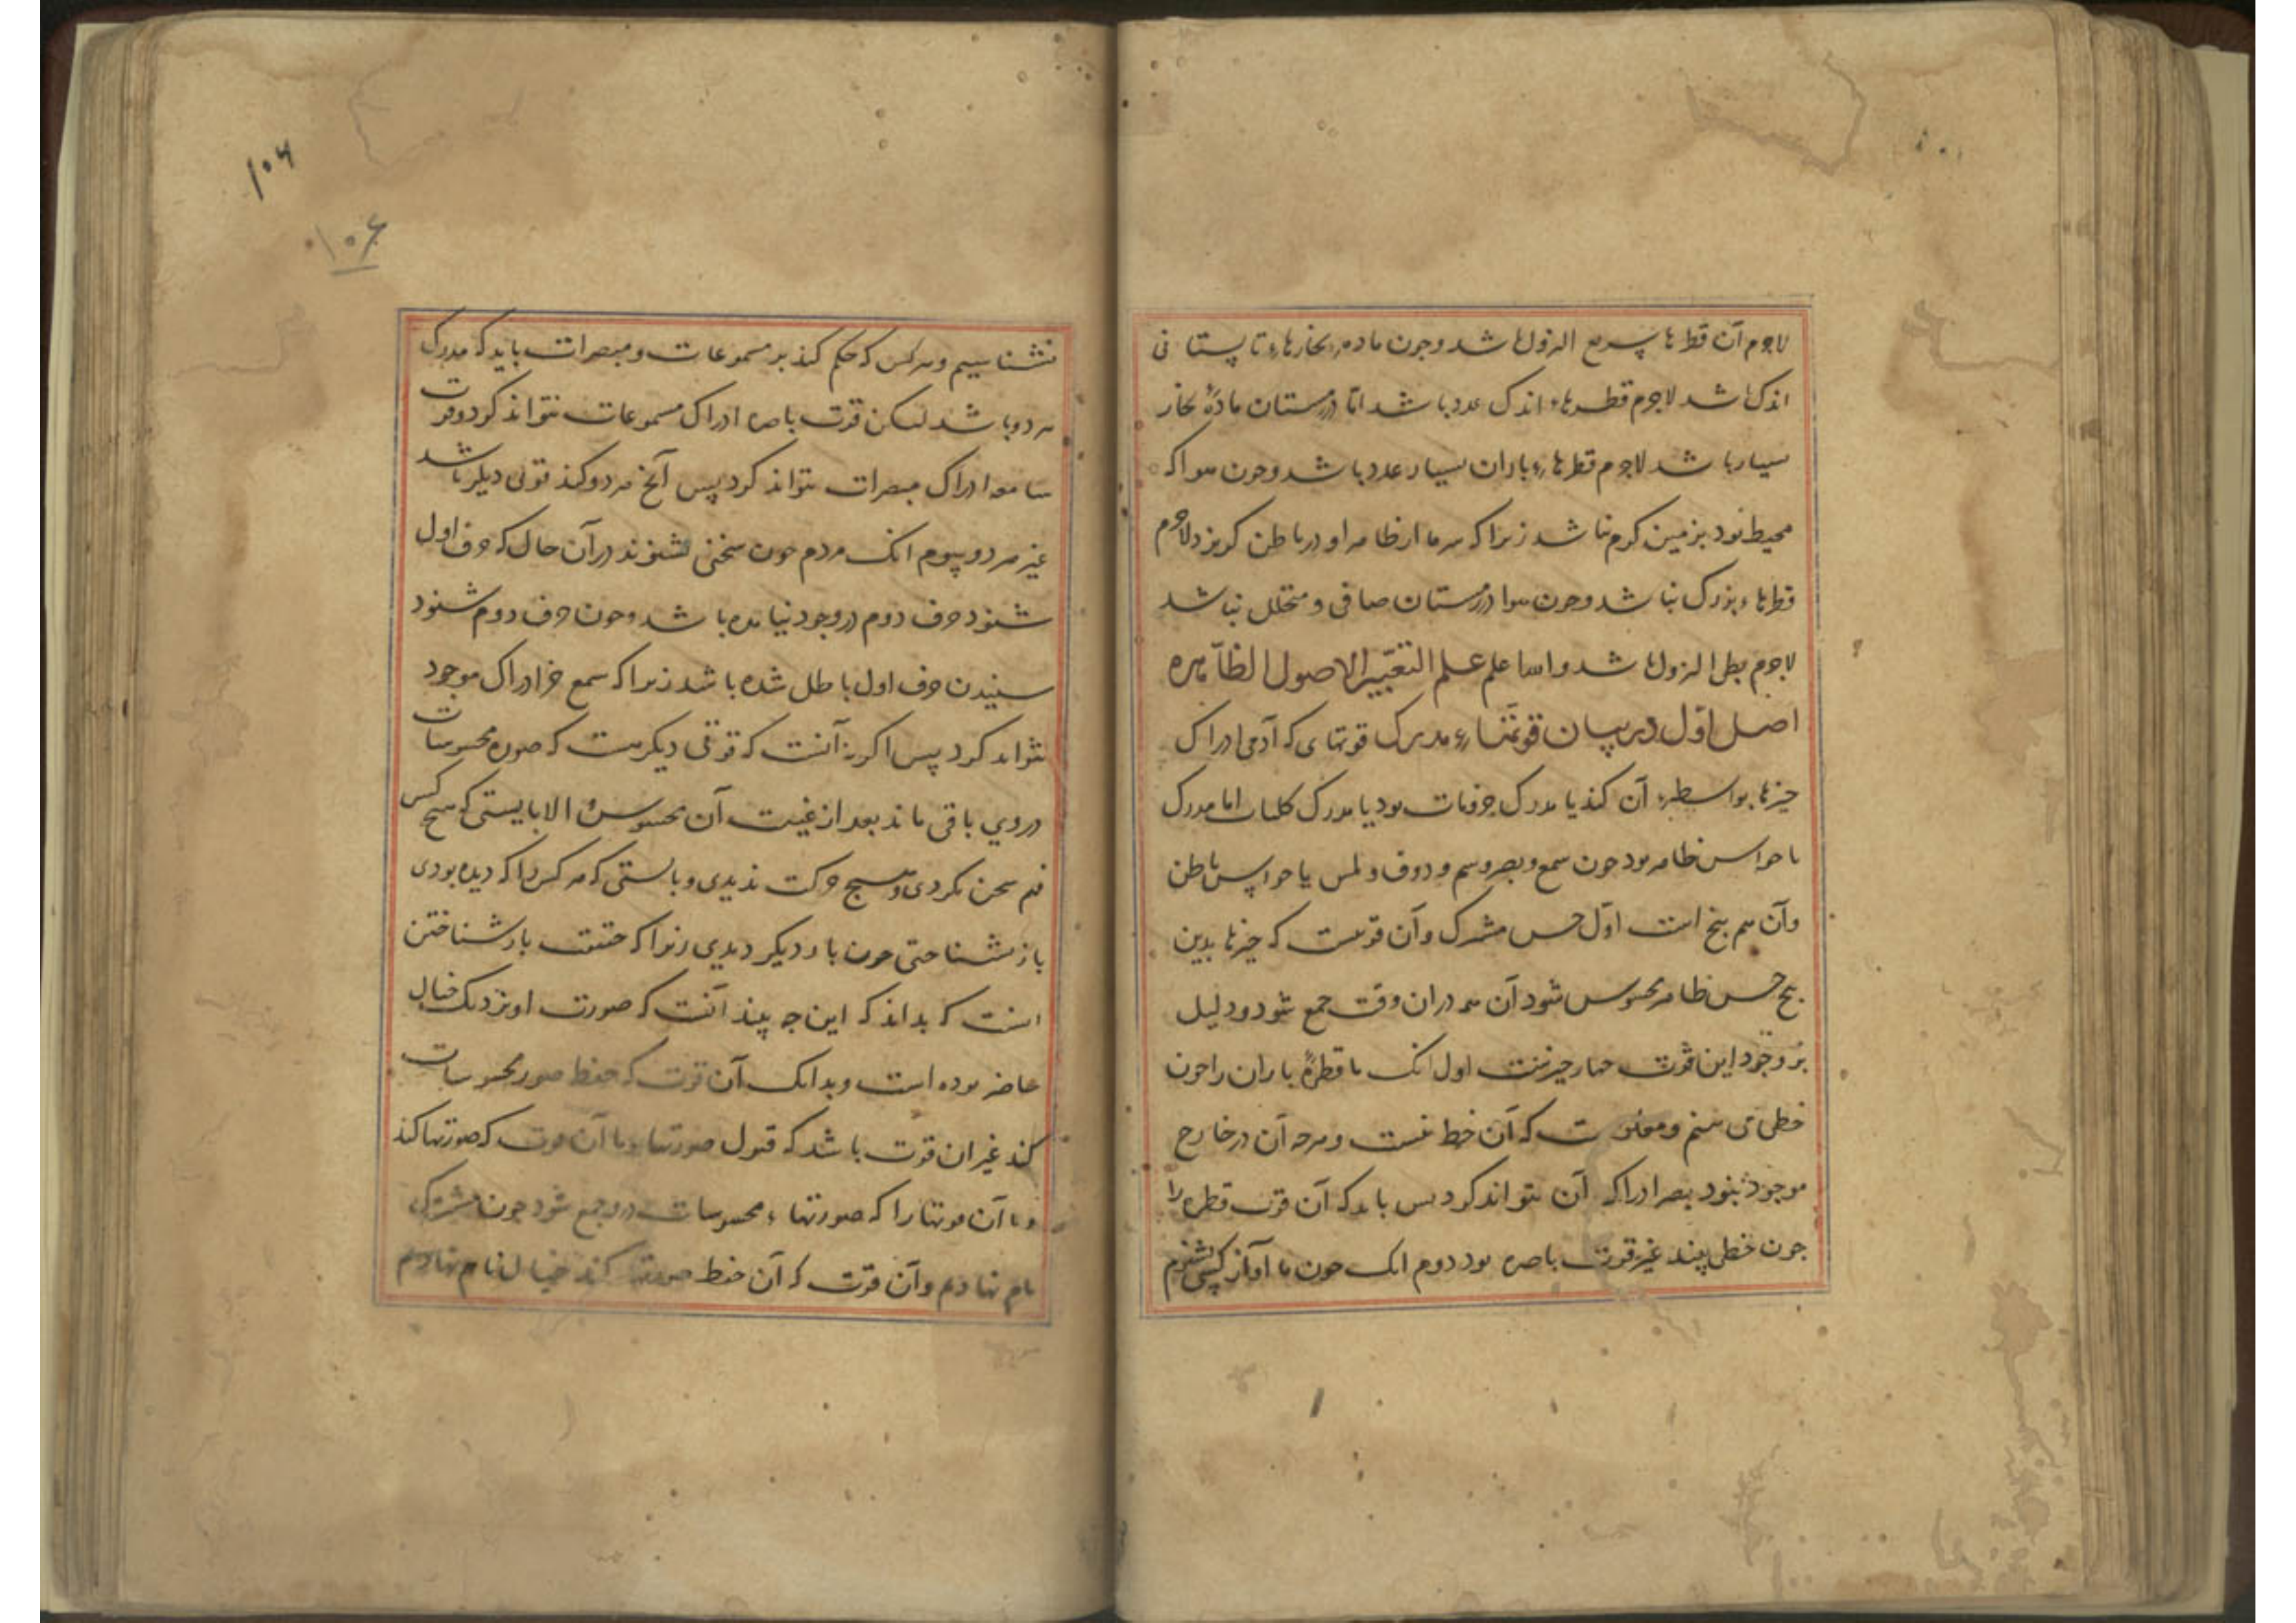 لاجرم آن قطرها سریع النزول باشد و چون ماده بخارهاء تابستانی
اندک باشد لاجرم قطرهاء اندک عدد باشد اما در زمستان مادهٔ بخار
بسیار باشد لاجرم قطرهاء باران بسیار عدد باشد و چون هوا که
محیط بود بزمین گرم نباشد زیرا که سرما از ظاهر او در باطن گریزد لاجرم
قطرهاء بزرگ نباشد و چون هوا در زمستان صافی و متخلل نباشد
لاجرم بطی النزول باشد و اسا علم علم التعبیر الاصول الظاهره
اصل اول در بیان قوتهاء مدرک قوتهای که آدمی ادراک
چیزها بواسطهٔ آن کند یا مدرک جزویات بود یا مدرک کلیات اما مدرک
یا حواس ظاهر بود چون سمع و بصر و شم و ذوق و لمس یا حواس باطن
و آن هم پنج است اول حس مشترک و آن قوتیست که چیزها بدین
پنج حس ظاهر محسوس شود آن همه در آن وقت جمع شود و دلیل
بر وجود این قوت چهار چیزست اول آنک ما قطرهٔ باران را چون
خطی می بینیم و معلوم است که آن خط نیست و هرچه آن در خارج
موجود نبود بصر ادراک آن نتواند کرد پس باید که آن قوت قطره را
چون خطی بیند غیر قوت باصره بود دوم آنک چون ما آواز کسی بشنویم
۱۰۶
۱۰۶
بشناسیم و هر کس که حکم کند بر مسموعات و مبصرات باید که مدرک
هر دو باشد لیکن قوت باصره ادراک مسموعات نتواند کرد و قوت
سامعه ادراک مبصرات نتواند کرد پس آنچ هر دو کند قوتی دیگر باشد
غیر هر دو سیوم آنک مردم چون سخنی بشنوند در آن حال که حرف اول
شنود حرف دوم در وجود نیامده باشد و چون حرف دوم شنود
شنیدن حرف اول باطل شده باشد زیرا که سمع جز ادراک موجود
نتواند کرد پس اگر نه آنست که قوتی دیگر هست که صوره محسوسات
در وی باقی ماند بعد از غیبت آن محسوس و الا بایستی که هیچ کس
فهم سخن نکردی و هیچ حرکت ندیدی و بایستی که هر کس را که دیده بودی
باز نشناختی چون بار دیگر دیدی زیرا که حقیقت باز شناختن
آنست که بداند که این چه بیند آنست که صورت او نزدیک خیال
حاضر بوده است و بدانک آن قوت که حفظ صور محسوسات
کند غیر آن قوت باشد که قبول صورتها و ما آن قوت که صورتها کند
و ما آن قوتها را که صورتهاء محسوسات در و جمع شود چون مشترک
نام نهادیم و آن قوت که آن حفظ صورتها کند خیال نام نهادیم